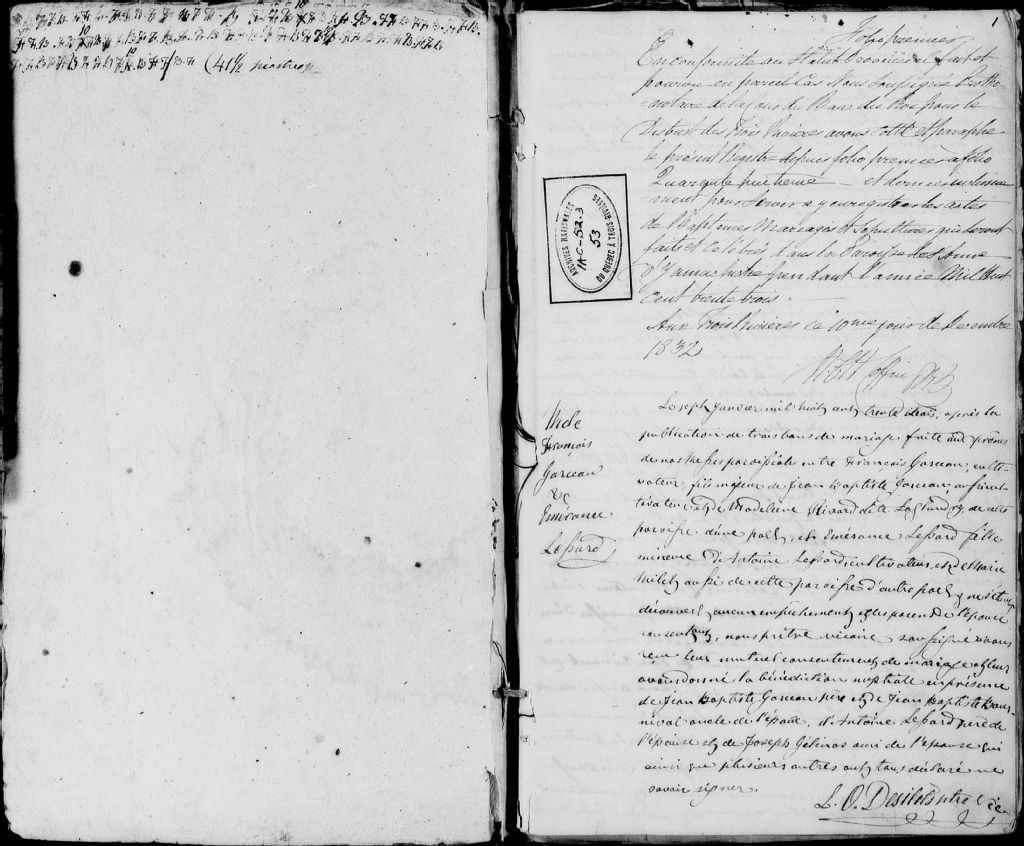 (41 1/2 piastres
1
Folio premier
En conformité au Statut Provincial fait et
pourvu en pareil Cas Nous Soussigné Protho
notaire de la Cour du Banc du Roi pour le
District des Trois Rivières avons Cotté et paraphé
le présent Registre depuis folio premier à folio
Quarante huitième et dernier inclusive
ment pour Servir à y enregistrer les actes
de Baptêmes Mariages et Sépultures qui seront
faits et Célébrés dans la Paroisse de Ste Anne
d'Yamachiche pendant l'année Mil Huit
Cent trente trois.
Aux Trois Rivières ce 10me jour de Décembre
1832
ARCHIVES NATIONALES
IAC-52-3
53
DU QUÉBEC À TROIS-RIVIÈRES
Mde
François
Garceau
&
Emérance
Lessard
Le sept Janvier mil huit cent trente trois, après la
publication de trois bans de mariage faite aux prônes
de nos messes paroissiales entre François Garceau, culti-
vateur, fils majeur de Jean Baptiste Garceau, aussi cul-
tivateur et de Madeleine Rivard dite Laglandry, de cette
paroisse d'une part, et Emérance Lessard fille
mineure d'Antoine Lessard, cultivateur, et de Marie
Milet aussi de cette paroisse d'autre part, ne s'étant
découvert aucun empêchement et les parens de l'épouse
consentant, nous prêtre vicaire soussigné avons
reçu leur mutuel consentement de mariage et leur
avons donné la bénédiction nuptiale en présence
de Jean Baptiste Garceau père et de Jean Baptiste
oncle de l'époux, d'Antoine Lessard père de
l'épouse et de Joseph Gélinas ami de l'épouse qui
ainsi que plusieurs autres ont tous déclaré ne
savoir signer.
L. O. Désilets ptre Vic